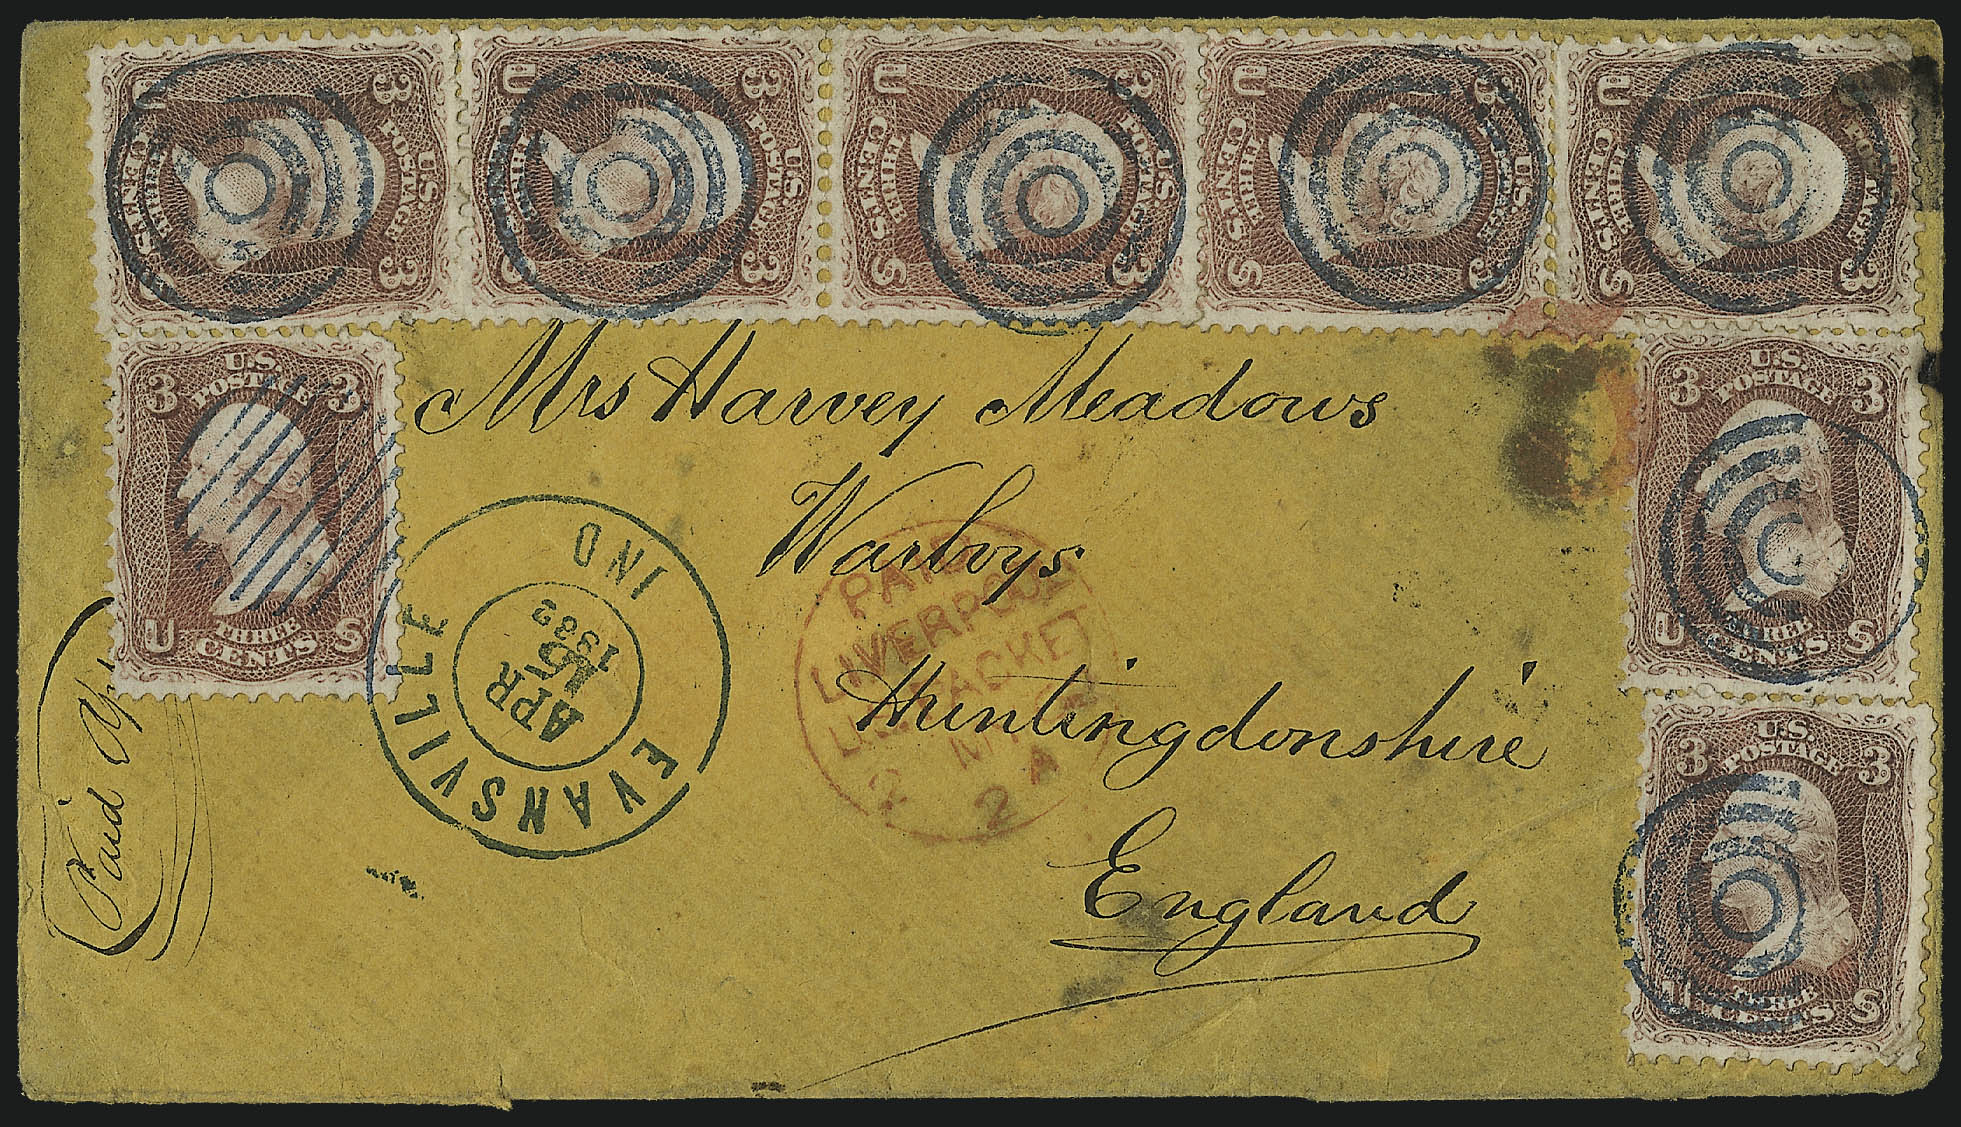 U.S. POSTAGE
3 3
U THREE CENTS S
U.S. POSTAGE
3 3
U THREE CENTS S
U.S. POSTAGE
3 3
U THREE CENTS S
U.S. POSTAGE
3 3
U THREE CENTS S
U.S. POSTAGE
3 3
U THREE CENTS S
U.S.
POSTAGE
3 3
U THREE S
CENTS
Mrs Harvey Meadows
Warboys
Huntingdonshire
England
U.S.
POSTAGE
3 3
U THREE S
CENTS
U.S.
POSTAGE
3 3
U THREE S
CENTS
EVANSVILLE IND
APR
15
PAID
LIVERPOOL
PACKET
2 A
2
Paid